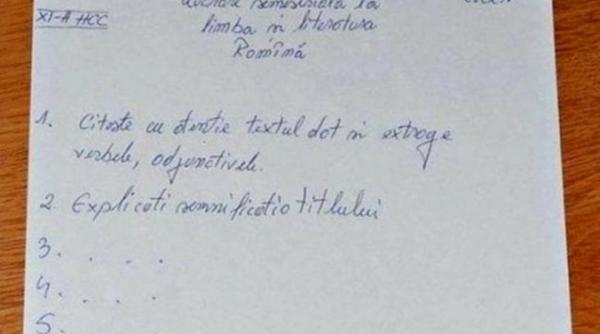 XI-A HCC
Lucrare semestrială la
limba și literatura
Română
1. Citește cu atenție textul dat și extrage
verbele, adjunctivele.
2. Explicați semnificatia titlului
3. . . . .
4. . . . .
5.